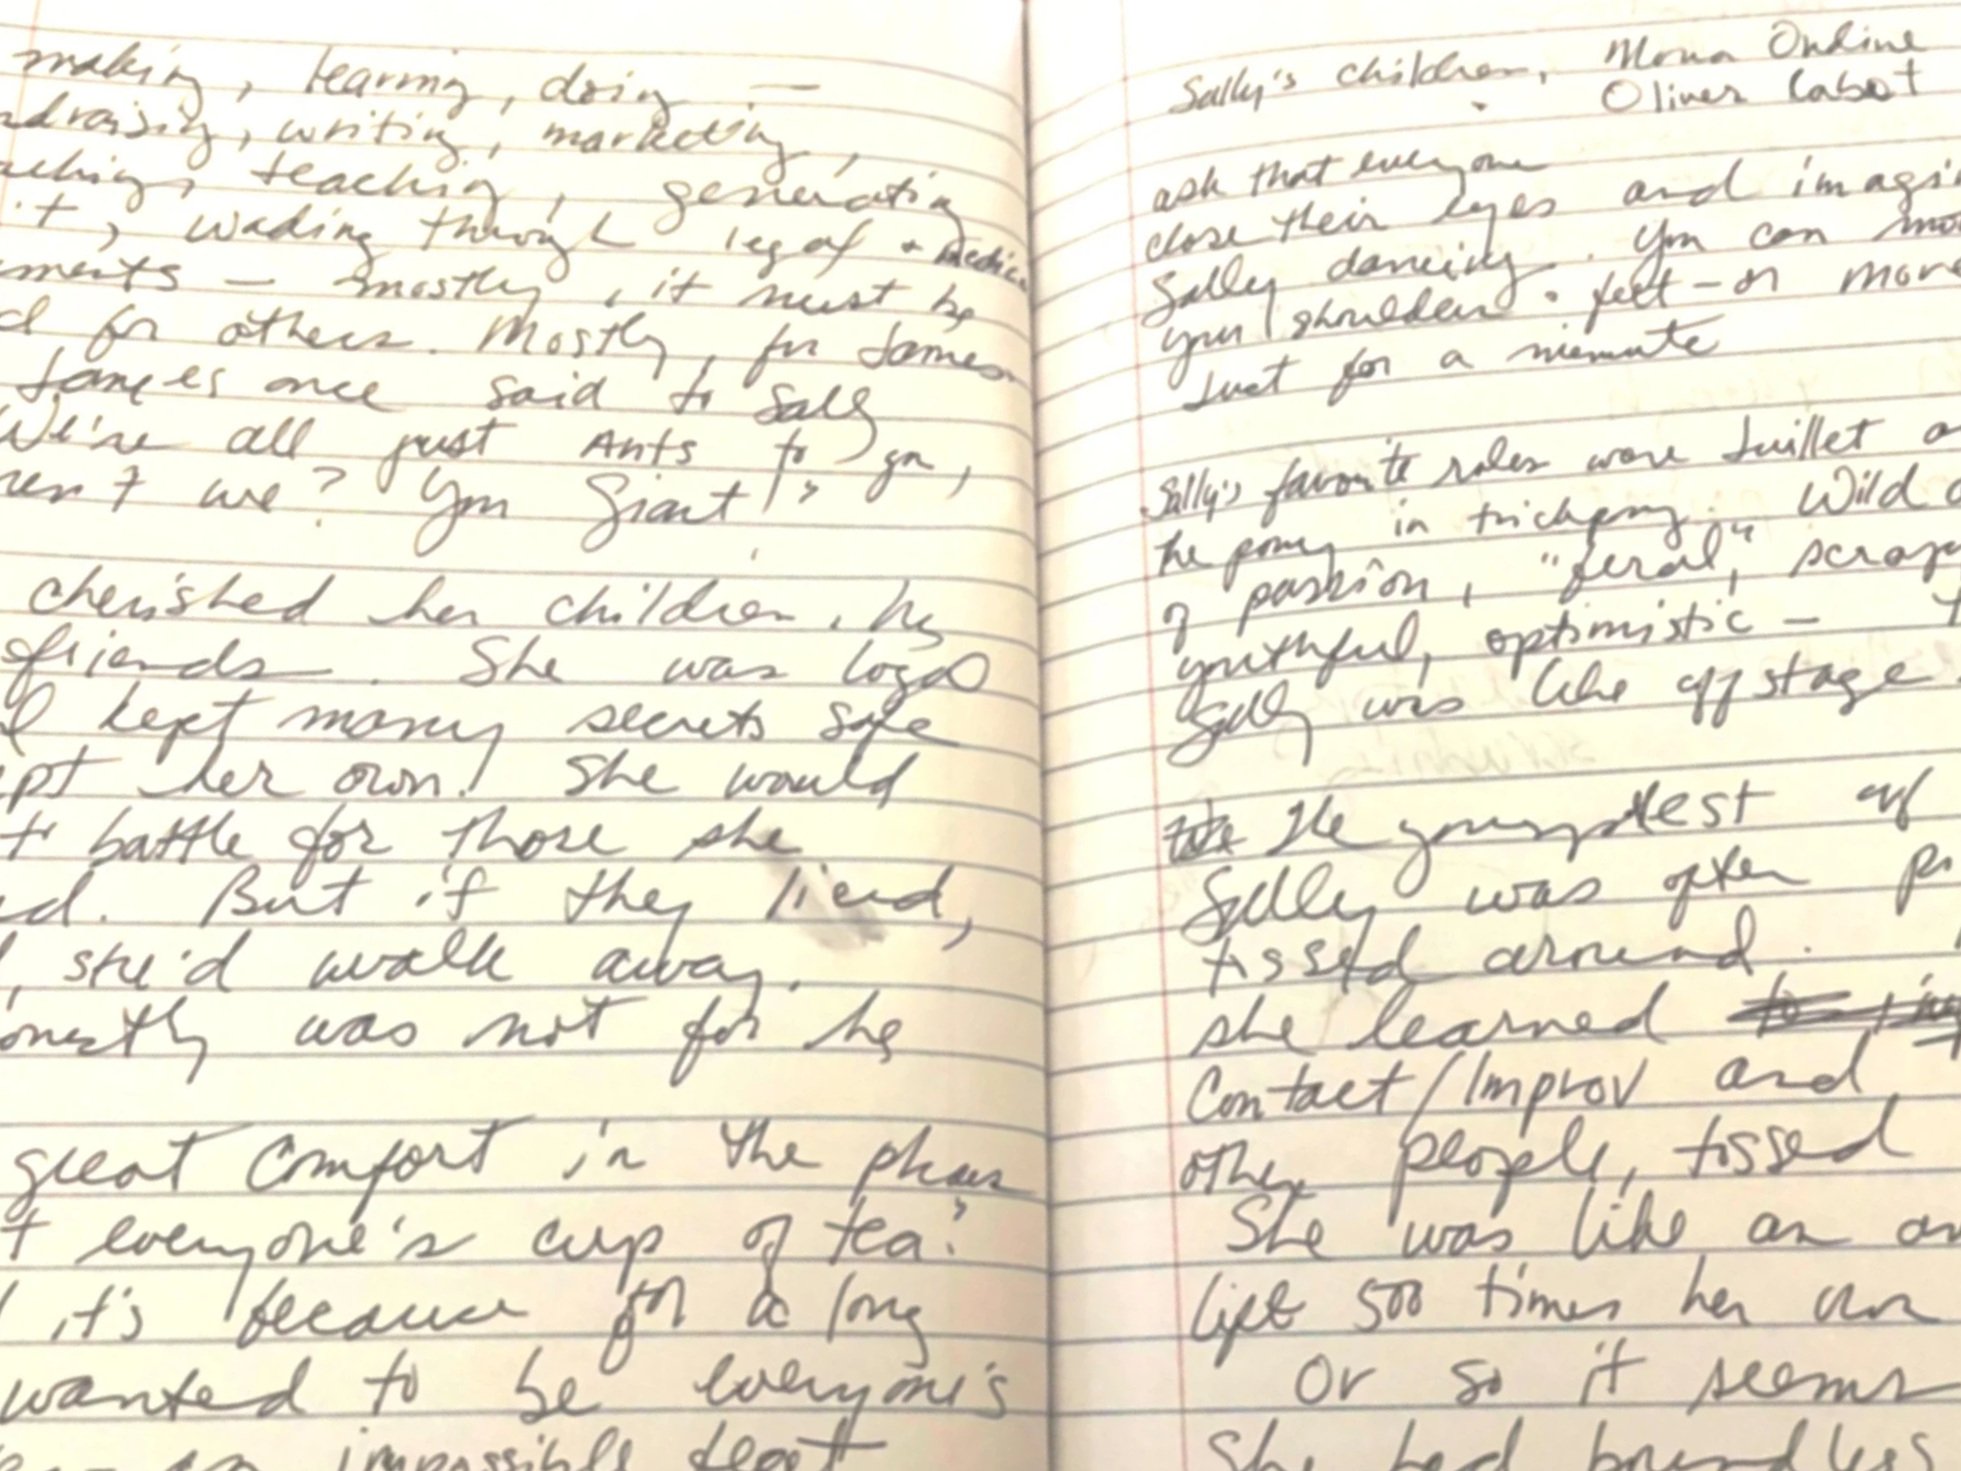 making, tearing, doing —
draising, writing, marketing,
aching, teaching, generating
it, wading through legal + medica
ments — mostly, it must be
d for others. Mostly, for James.
James once said to Sally
We're all just Ants to you,
ren't we? You Giant!"
cherished her children, he
friends. She was loyal
d kept many secrets safe
ept her own! She would
t battle for those she
ed. But if they lied,
, she'd walk away.
onestly was not for he
great comfort in the phras
t everyone's cup of tea."
it's because for a long
wanted to be everyone's
impossible feat
Sally's children, Mona Ondine
Oliver Cabot
ask that everyone
close their eyes and imagin
Sally dancing. You can mo
your shoulders. feet - or more
Just for a minute
Sally's favorite roles were Juillet a
the pony in
of passion, "feral," scrap
youthful, optimistic —
Sally was like off stage.
The youngest of
Sally was often p
tossed around.
she learned
Contact/Improv and
other people, tossed
She was like an an
lift 500 times her own
Or so it seems
She had boundless